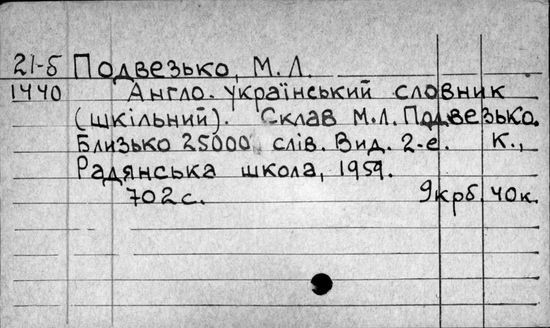 21-б Подвезько, М.Л.
1440 Англо-український словник
(шкільний). Склав М.Л. Подвезько.
Близько 25000 слів. Вид. 2-е. К.,
Радянська школа, 1959.
702 с. 9крб. 40к.